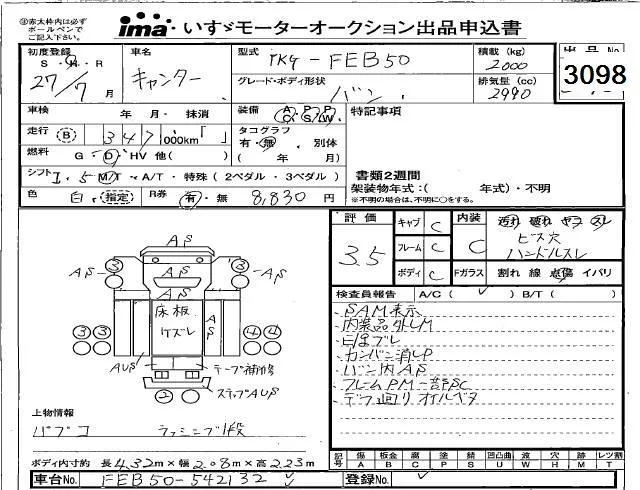 ※赤太枠内は必ず
ボールペンで
ご記入下さい。
ima いすゞモーターオークション出品申込書
初度登録 車名 型式 積載 (kg) 出品No
S・H・R キャンター TKG-FEB50 2000
27/7月 グレード・ボディ形状 排気量 (cc) 3098
バン 2990
車検 年 月・ 抹消 装備 AC PS PW 特記事項
走行 347,000km「 」 タコグラフ
有・無 別体
燃料 G・D・HV 他( ) ( 年 月)
シフト I・5 M/T・A/T・特殊 (2ペダル・3ペダル) 書類2週間
架装物年式:( 年式)・不明
※不明の場合は、不明に○をする。
色 白・指定 R券 有・無 8,830 円
評価 キャブ C 内装 汚れ 破れ ヤコ スレ
3.5 フレーム C C ビス穴
ハンドルスレ
ボディ C Fガラス 割れ 線 点傷 イバリ
検査員報告 A/C ( ) B/T ( )
SAM表示
内装品外しM
カンバン消しP
バン内AS
フレームPM一部SC
デフ廻りオイルベタ
AS
3 3
AS AS
AS
床板
ケズレ
AS
3 3 4 4
AUS テープ補修
2 ステップAUS
上物情報
パブコ ラッシング1段
ボディ内寸約 長4.32m×幅2.08m×高2.23m
記号 傷 板金 腐 塗 錆 凹凸曲 波 穴 跡 レツ割
A B C P S U W H M T
車台No. FEB50-542132 登録No.